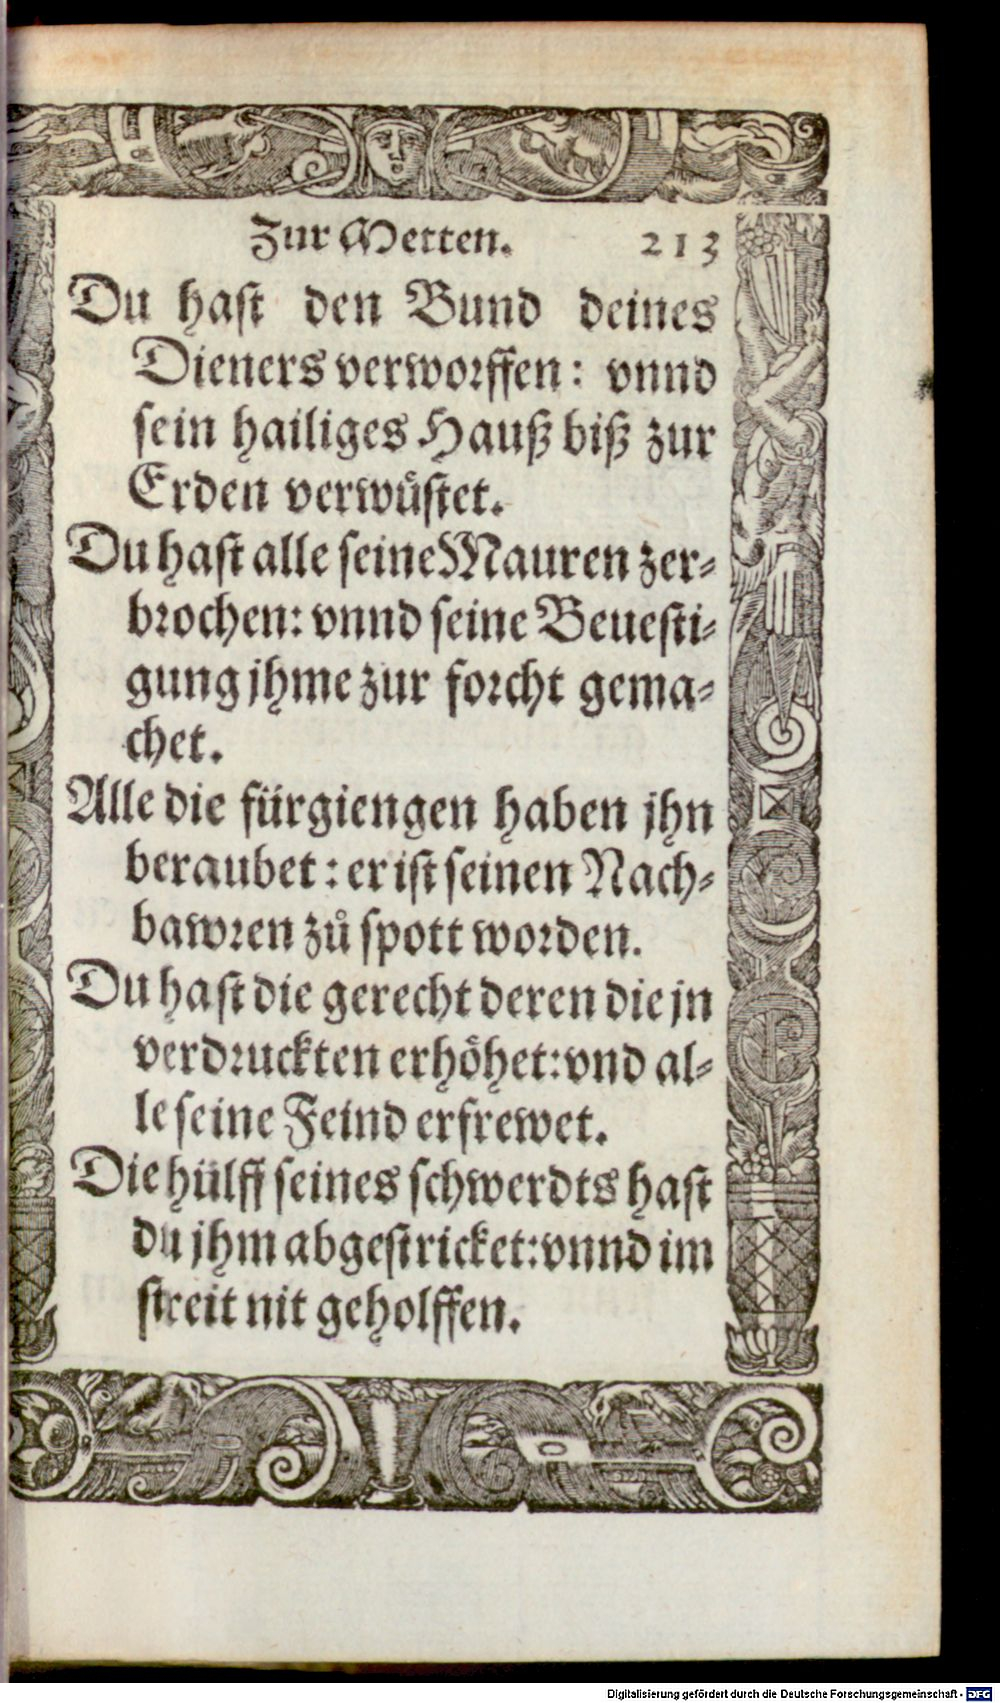 Zur Metten. 213
Du hast den Bund deines
Dieners verworffen: vnnd
sein hailiges Hauß biß zur
Erden verwuͤstet.
Du hast alle seine Mauren zer⸗
brochen: vnnd seine Beuesti⸗
gung jhme zur forcht gema⸗
chet.
Alle die fürgiengen haben jhn
beraubet: er ist seinen Nach⸗
bawren zů spott worden.
Du hast die gerecht deren die jn
verdruckten erhoͤhet: vnd al⸗
le seine Feind erfrewet.
Die hülff seines schwerdts hast
du jhm abgestricket: vnnd im
streit nit geholffen.
Digitalisierung gefördert durch die Deutsche Forschungsgemeinschaft - DFG